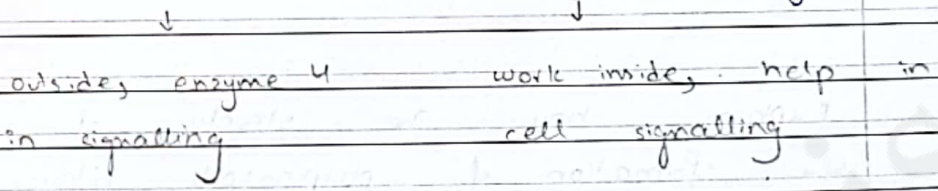 outside, enzyme 4 work inside, help in
in signalling cell signalling